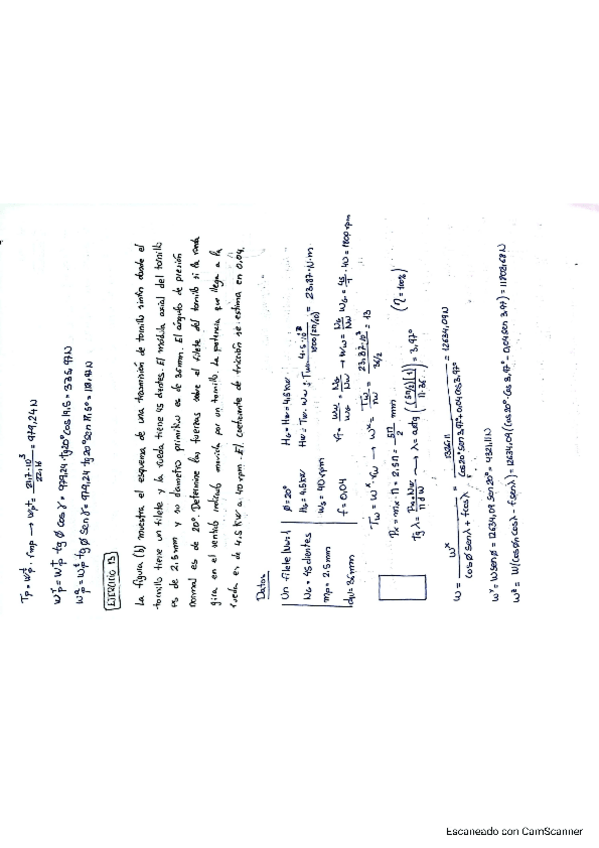 Tp = Wpt · rmp → Wpt = 21.7·10³ / 22.16 = 979,24 N
Wpr = Wpt tg ø cos γ = 979,24 · tg20° cos
Wpa = Wpt tg ø sen γ = 979,24 tg20° sen
EJERCICIO 13
La figura (b) muestra el esquema de una trasmisión de tornillo sinfín donde el
tornillo tiene un filete y la rueda tiene 45 dientes. El módulo axial del tornillo
es de 2.5mm y su diámetro primitivo es de 36mm. El ángulo de presión
normal es de 20°. Determine las fuerzas sobre el filete del tornillo si la rueda
gira en el sentido indicado movida por un tornillo. La potencia que llega a la
rueda es de 4.5 kW a 40 rpm. El coeficiente de fricción se estima en 0,04.
Datos
Un filete Nw=1
NG = 45 dientes
mp = 2.5mm
dw = 36mm
ø = 20°
HG = 4.5kW
WG = 40 rpm
f = 0,04
HG = Hw = 4.5 kW
Hw = Tw · ww ; Tw = 4.5·10³ / 1800(2π/60) = 23.87 N·m
= NG / Nw → ww = NG / Nw · WG = 45/1 · 40 = 1800 rpm
Tw = Wx · rw → Wx = Tw / rw = 23.87·10³ / 36/2 =
(η = 100%)
Px = mx · π = 2,5π = 5π/2 mm
Tg λ = Px·Nw / π dw → λ = arctg ( (5π/2)(1) / π·36 ) = 3,97°
W = Wx / cos ø sen λ + f cos λ = / cos20° sen3.97° + 0,04 cos3.97° = 12634,09 N
Wy = W sen ø = 12634,09 sen 20° = 4321.11 N
Wz = W (cos ø cos λ - f sen λ) = 12634,09 (cos 20° · cos 3,97° - 0,04 sen 3.97) =
Escaneado con CamScanner